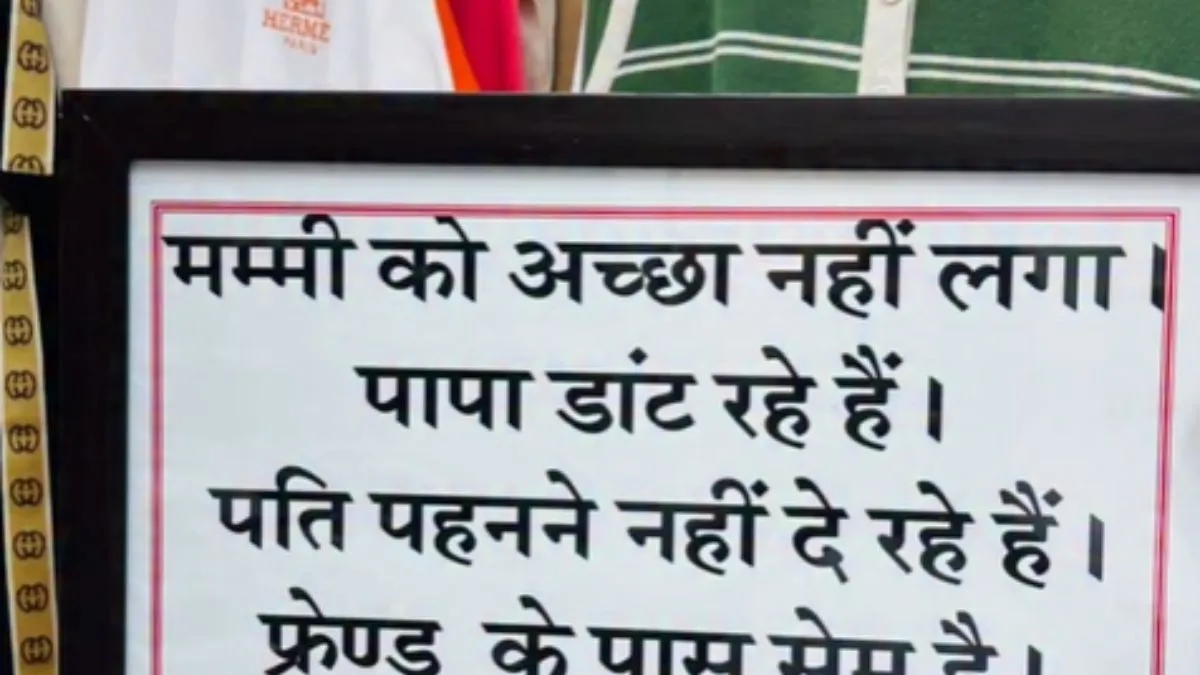 HERME
PARIS
मम्मी को अच्छा नहीं लगा।
पापा डांट रहे हैं।
पति पहनने नहीं दे रहे हैं।
फ्रेण्ड के पास सेम है।